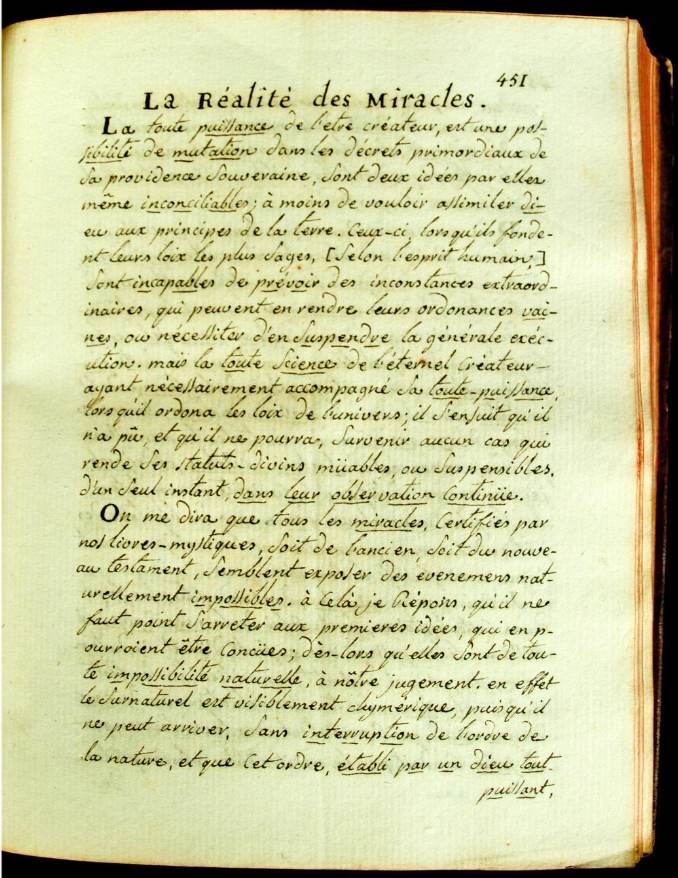 451
La Réalité des Miracles.
La toute puissance de l'etre créateur, est une pos-
sibilité de mutation dans les décrets primordiaux de
sa providence souveraine, sont deux idées par elles
même inconciliables; à moins de vouloir assimiler di-
eu aux principes de la terre. Ceux-ci, lorsqu'ils fonde-
nt leurs loix les plus sages, [selon l'esprit humain,]
sont incapables de prévoir des inconstances extraord-
inaires, qui peuvent en rendre leurs ordonances vai-
nes, ou nécessiter d'en suspendre la générale exéc-
ution. mais la toute science de l'éternel Créateur
ayant nécessairement accompagné sa toute-puissance,
lors qu'il ordona les loix de l'univers; il s'ensuit qu'il
n'a pû, et qu'il ne pourra, survenir aucun cas qui
rende ses statuts-divins müables, ou suspensibles,
d'un seul instant, dans leur observation continüe.
On me dira que tous les miracles, certifiés par
nos livres-mystiques, soit de l'ancien, soit du nouve-
au testament, semblent exposer des évenemens nat-
urellement impossibles. à Celà, je Répons, qu'il ne
faut point s'arreter aux premieres idées, qui en p-
ourroient être Concües; dès-lors qu'elles sont de tou-
te impossibilité naturelle, à nôtre jugement. en effét
le surnaturel est visiblement chymérique, puisqu'il
ne peut arriver, sans interruption de l'ordre de
la nature, et que Cet ordre, établi par un dieu tout-
puissant,